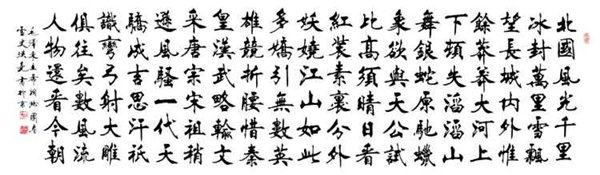 北國風光千里
冰封萬里雪飄
望長城內外惟
餘莽莽大河上
下頓失滔滔山
舞銀蛇原馳蠟
象欲與天公試
比高須晴日看
紅裝素裹分外
妖嬈江山如此
多嬌引無數英
雄競折腰惜秦
皇漢武略輸文
采唐宗宋祖稍
遜風騷一代天
驕成吉思汗祇
識彎弓射大雕
俱往矣數風流
人物還看今朝
毛澤東主席詞沁園春
雪